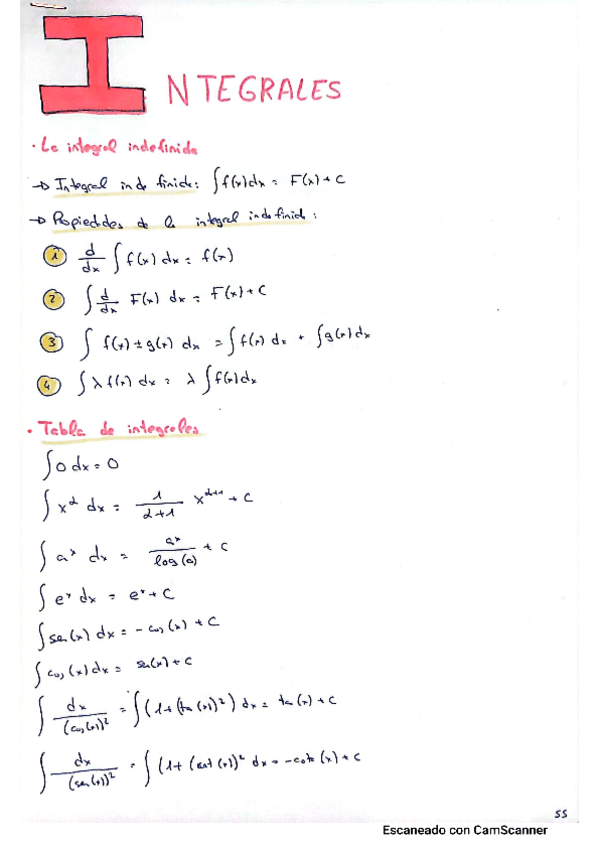 INTEGRALES
· La integral indefinida
→ Integral indefinida: ∫f(x)dx = F(x)+C
→ Propiedades de la integral indefinida:
1 d/dx ∫ f(x) dx = f(x)
2 ∫ d/dx F(x) dx = F(x)+C
3 ∫ f(x) ± g(x) dx = ∫f(x) dx + ∫g(x) dx
4 ∫ λ f(x) dx = λ ∫f(x)dx
· Tabla de integrales
∫0 dx = 0
∫ x^α dx = 1/(α+1) x^(α+1) + C
∫ a^x dx = a^x/log(a) + C
∫ e^x dx = e^x + C
∫ sen(x) dx = - cos(x) + C
∫ cos(x) dx = sen(x) + C
∫ dx/(cos(x))² = ∫(1+(ta(x))²) dx = ta(x) + C
∫ dx/(sen(x))² = ∫ (1+(cot(x))² dx = -cot(x) + C
55
Escaneado con CamScanner